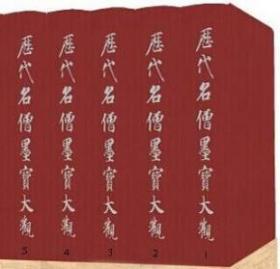 歷代名僧墨寶大觀
1
歷代名僧墨寶大觀
2
歷代名僧墨寶大觀
3
歷代名僧墨寶大觀
4
歷代名僧墨寶大觀
5